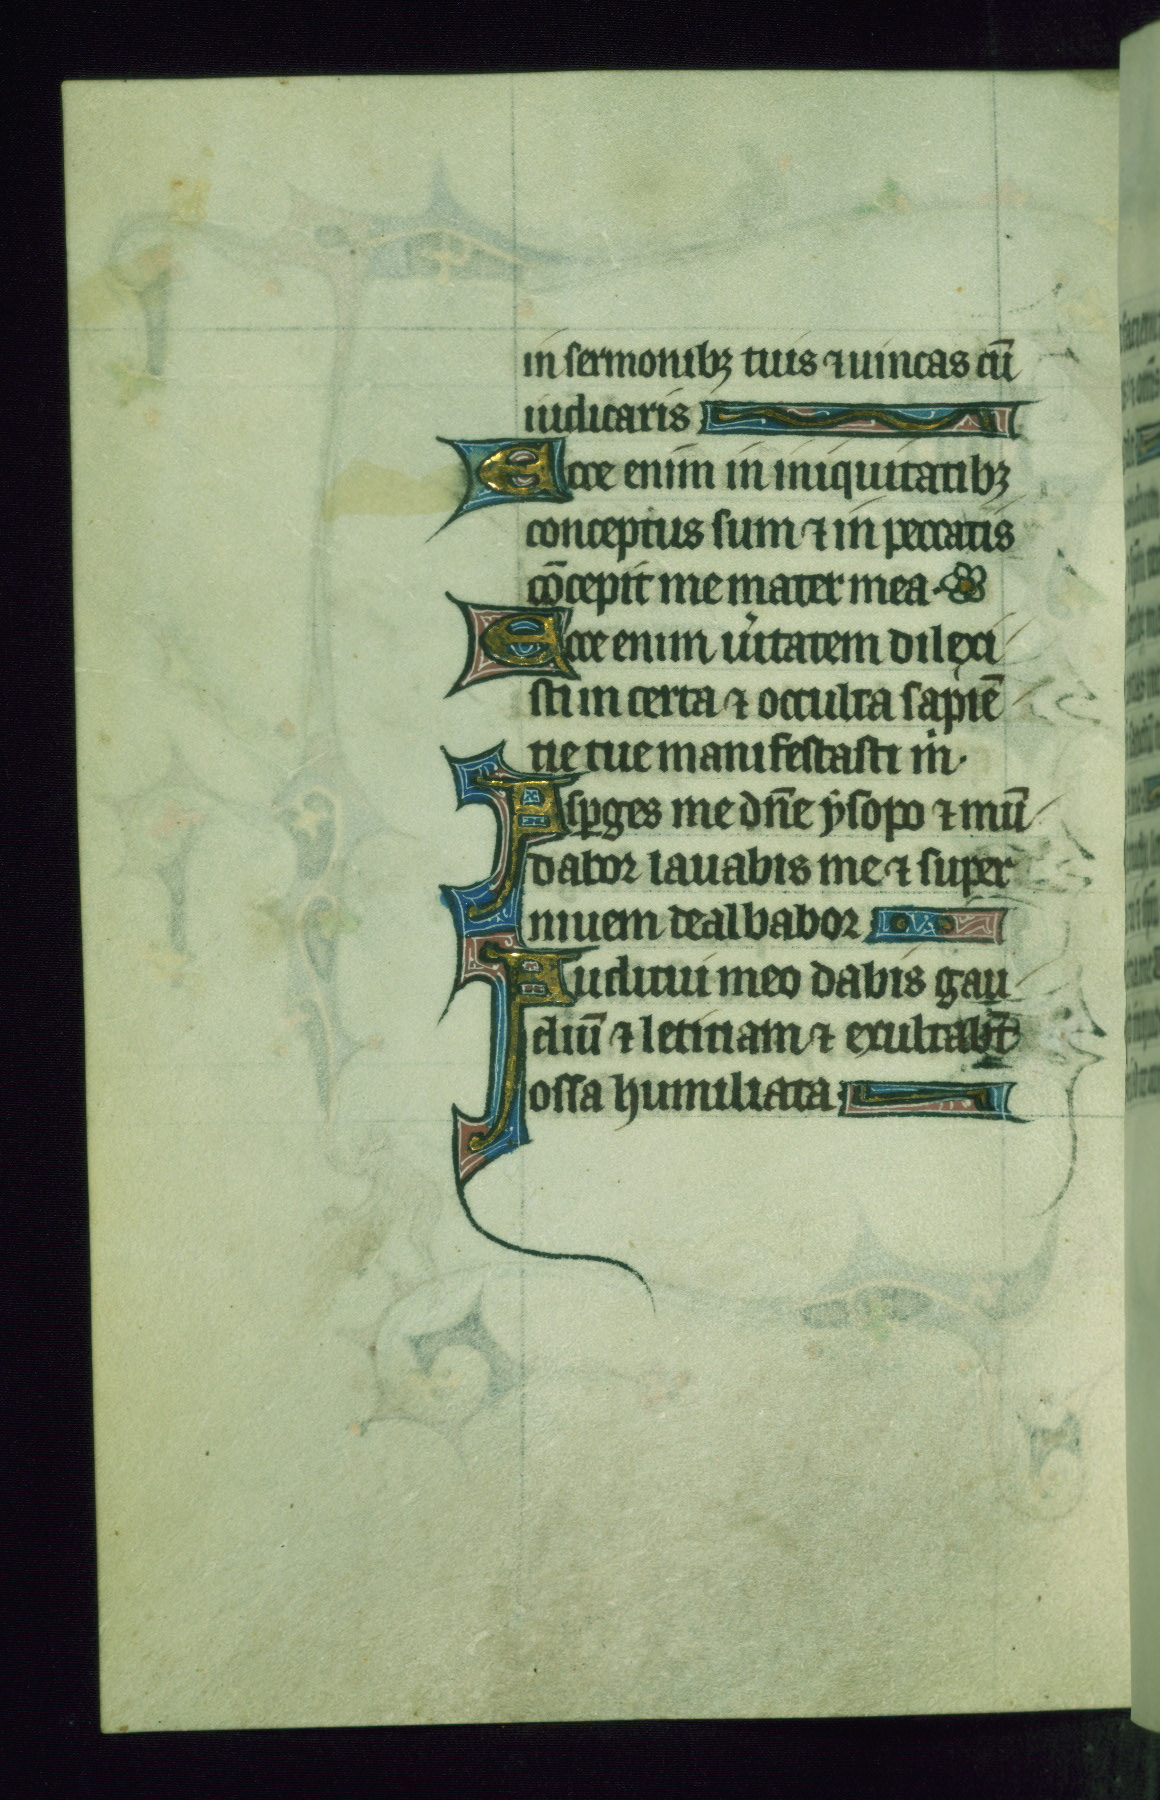 in sermonibꝫ tuis ⁊ uincas cū
iudicaris
Ecce enim in iniquitatibꝫ
conceptus sum ⁊ in peccatis
cōcepit me mater mea.
Ecce enim uͥitatem dilexi
sti in certa ⁊ occulta sapiē
tie tue manifestasti m̍.
Asꝑges me dn̄e ẏsopo ⁊ mū
dabor lauabis me ⁊ super
niuem dealbabor
Auditui meo dabis gau
diū ⁊ letitiam ⁊ exultabt̄
ossa humiliata